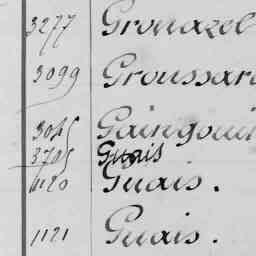 3277 Gronazel
3099 Groussard
3045 Guingouin
3705 Guais
1120 Guais.
1121 Guais.